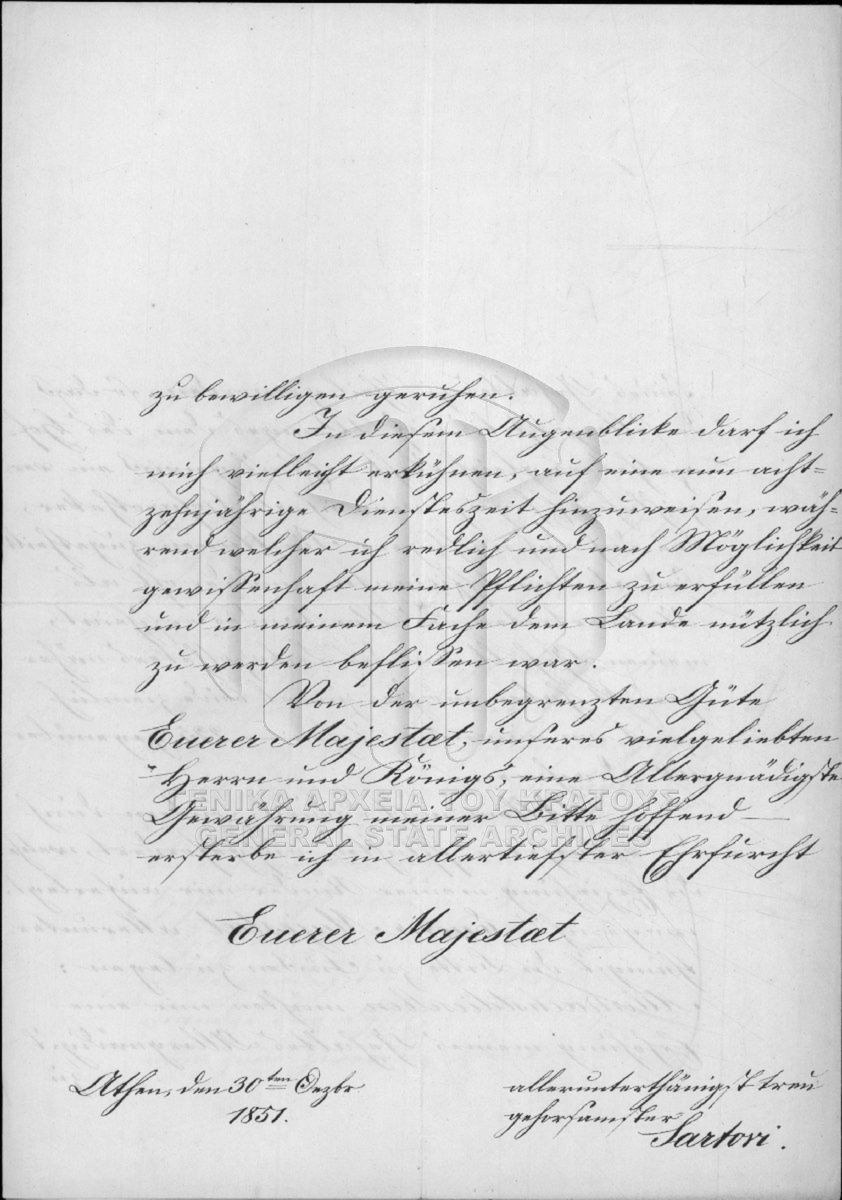 zu bewilligen geruhen.
In diesem Augenblicke darf ich
mich vielleicht erkühnen, auf eine nun acht=
zehnjährige Diensteszeit hinzuweisen, wäh=
rend welcher ich redlich und nach Möglichkeit
gewissenhaft meine Pflichten zu erfüllen
und in meinem Fache dem Lande nützlich
zu werden beflissen war.
Von der unbegrenzten Güte
Euerer Majestæt, unseres vielgeliebten
Herrn und Königs, eine Allergnädigste
ΓΕΝΙΚΑ ΑΡΧΕΙΑ ΤΟΥ ΚΡΑΤΟΥΣ
Gewährung meiner Bitte hoffend —
GENERAL STATE ARCHIVES
ersterbe ich in allertiefster Ehrfurcht
Euerer Majestæt
Athen, den 30ten Dezbr
1851.
allerunterthänigst treu
gehorsamster
Sartori.